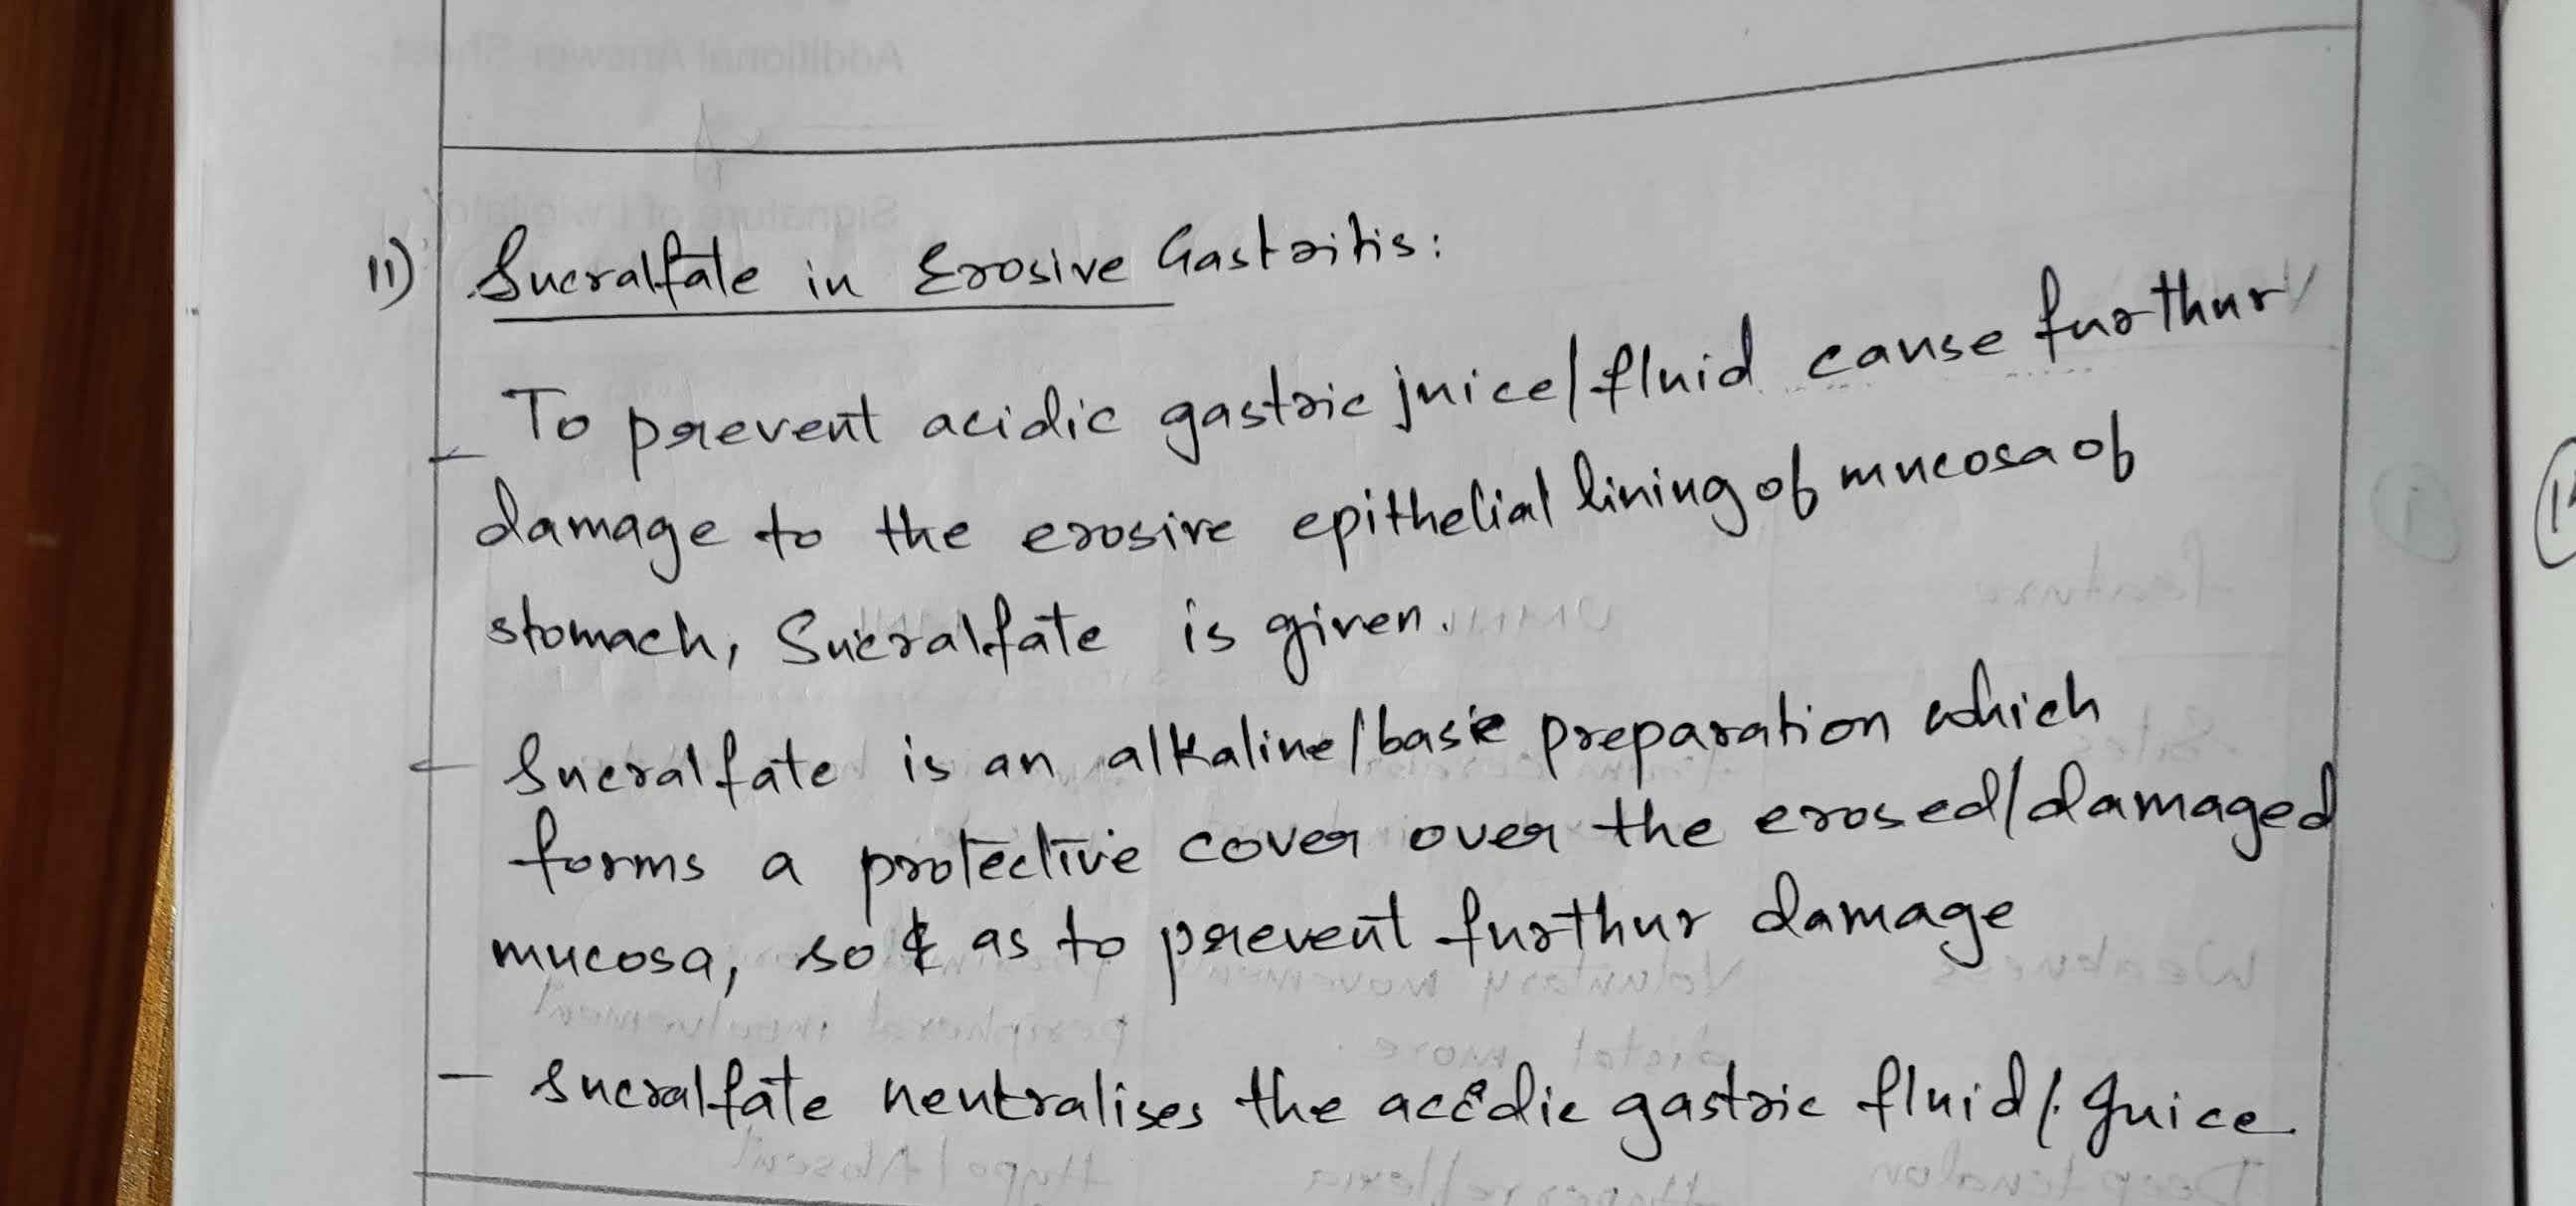 11) Sucralfate in Erosive Gastritis:
- To prevent acidic gastric juice/fluid cause furthur
damage to the erosive epithelial lining of mucosa of
stomach, Sucralfate is given.
- Sucralfate is an alkaline/basic preparation which
forms a protective cover over the erosed/damaged
mucosa, so as to prevent furthur damage
- Sucralfate neutralises the acidic gastric fluid/Juice.